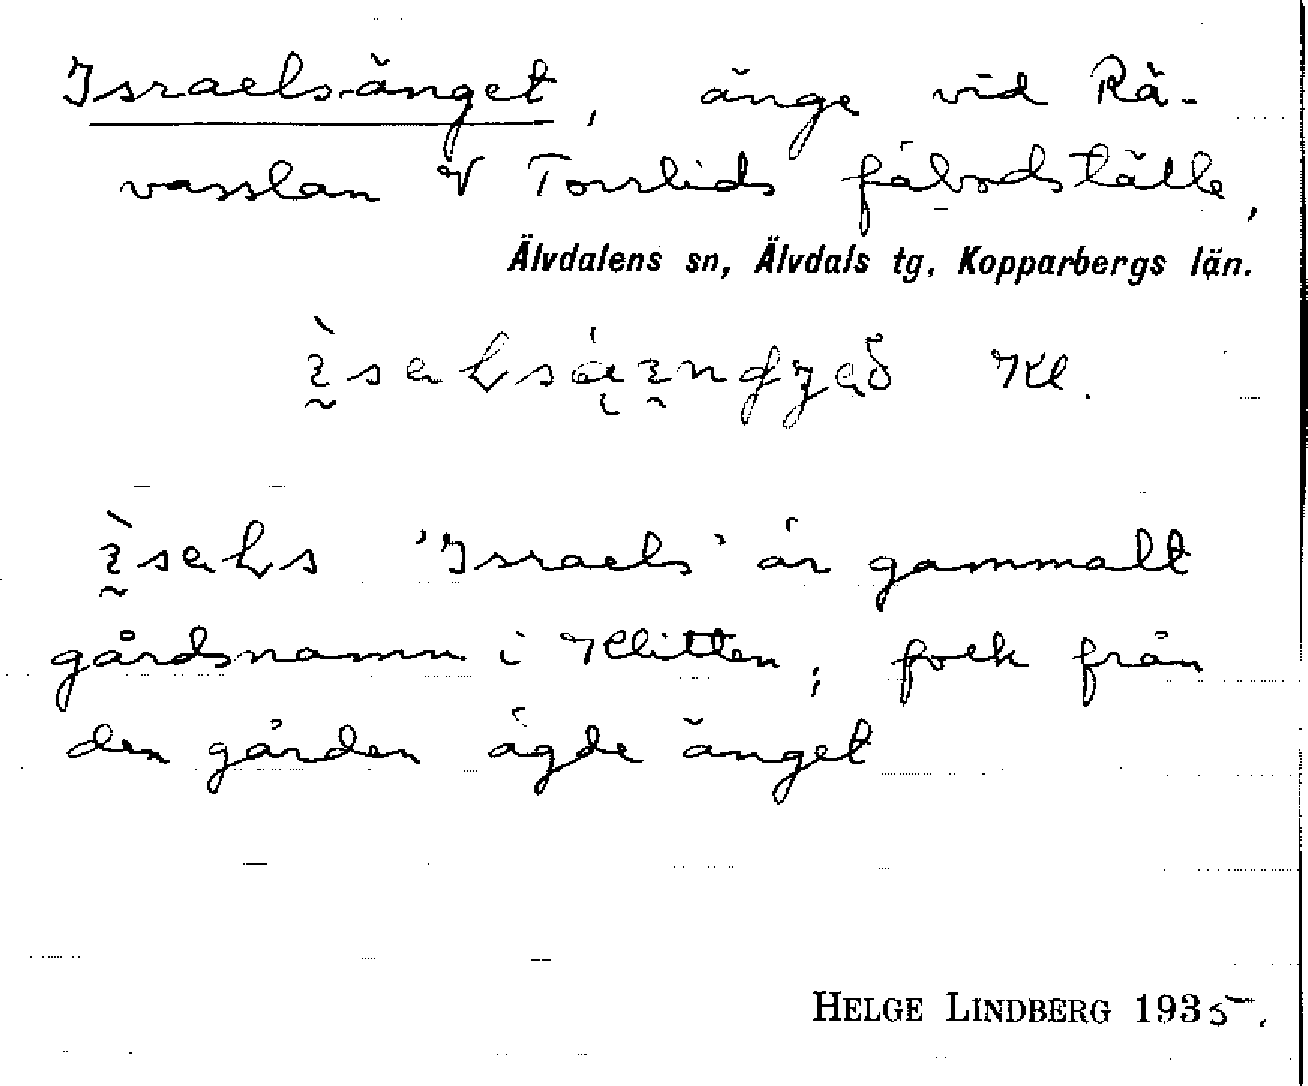 Israelsänget, änge vid Rä-
vasslan V Torrlids fäbodställe,
Älvdalens sn, Älvdals tg, Kopparbergs län.
Kl.
'Israels' är gammalt
gårdsnamn i Klitten, folk från
den gården ägde änget
HELGE LINDBERG 1935.